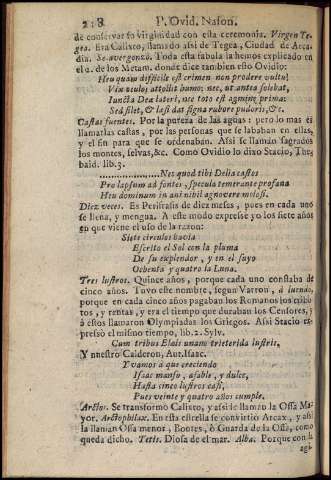 218 P. Ovid. Nason.
de conservar su virginidad con esta ceremonia. Virgen Te-
gea. Era Calixto, llamado assi de Tegea, Ciudad de Arca-
dia. Se avergonzó. Toda esta fabula la hemos explicado en
el 2. de los Metam. donde dice tambien esto Ovidio:
Heu quam difficile est crimen non prodere vultu!
Vix oculos attollit humo; nec, ut antea solebat,
Iuncta Deæ lateri, nec toto est agmine prima:
Sed silet, & læsi dat signa rubore pudoris, &c.
Castas fuentes. Por la pureza de las aguas: pero lo mas es
llamarlas castas, por las personas que se lababan en ellas,
y el fin para que se ordenaban. Assi se llamán sagrados
los montes, selvas, &c. Como Ovidio lo dixo Stacio, The-
baid. lib. 9.
.................. Nec quod tibi Delia castos
Prolapsum ad fontes, specula temerante profana
Heu dominum in aui nihil agnovere molosi.
Diez veces. Es Perifrasis de diez meses, pues en cada uno
se llena, y mengua. A este modo expresse yo los siete años
que viene el uso de la razon:
Siete circulos hacia
Escrito el Sol con la pluma
De su explendor, y en el suyo
Ochenta y quatro la Luna.
Tres lustros. Quince años, porque cada uno constaba de
cinco años. Tuvo este nombre, segun Varron, à luendo,
porque en cada cinco años pagaban los Romanos los tribu-
tos, y rentas, y era el tiempo que duraban los Censores, y
à estos llamaron Olympiadas los Griegos. Assi Stacio ex-
presso el mismo tiempo, lib. 2. Sylv.
Cum tribus Elais unam trieterida lustris,
Y nuestro Calderon, Aut. Isaac.
Y vamos à que creciendo
Isaac manso, afable, y dulce,
Hasta cinco lustros casi,
Pues veinte y quatro años cumple.
Arctos. Se transformo Calixto, y assi le llaman la Ossa Ma-
yor. Arctophilax. En esta estrella se convirtio Arcas, y assi
la llaman Ossa menor, Bootes, ò Guarda de la Ossa, como
queda dicho. Tetis. Diosa de el mar. Alba. Porque con la
agi-